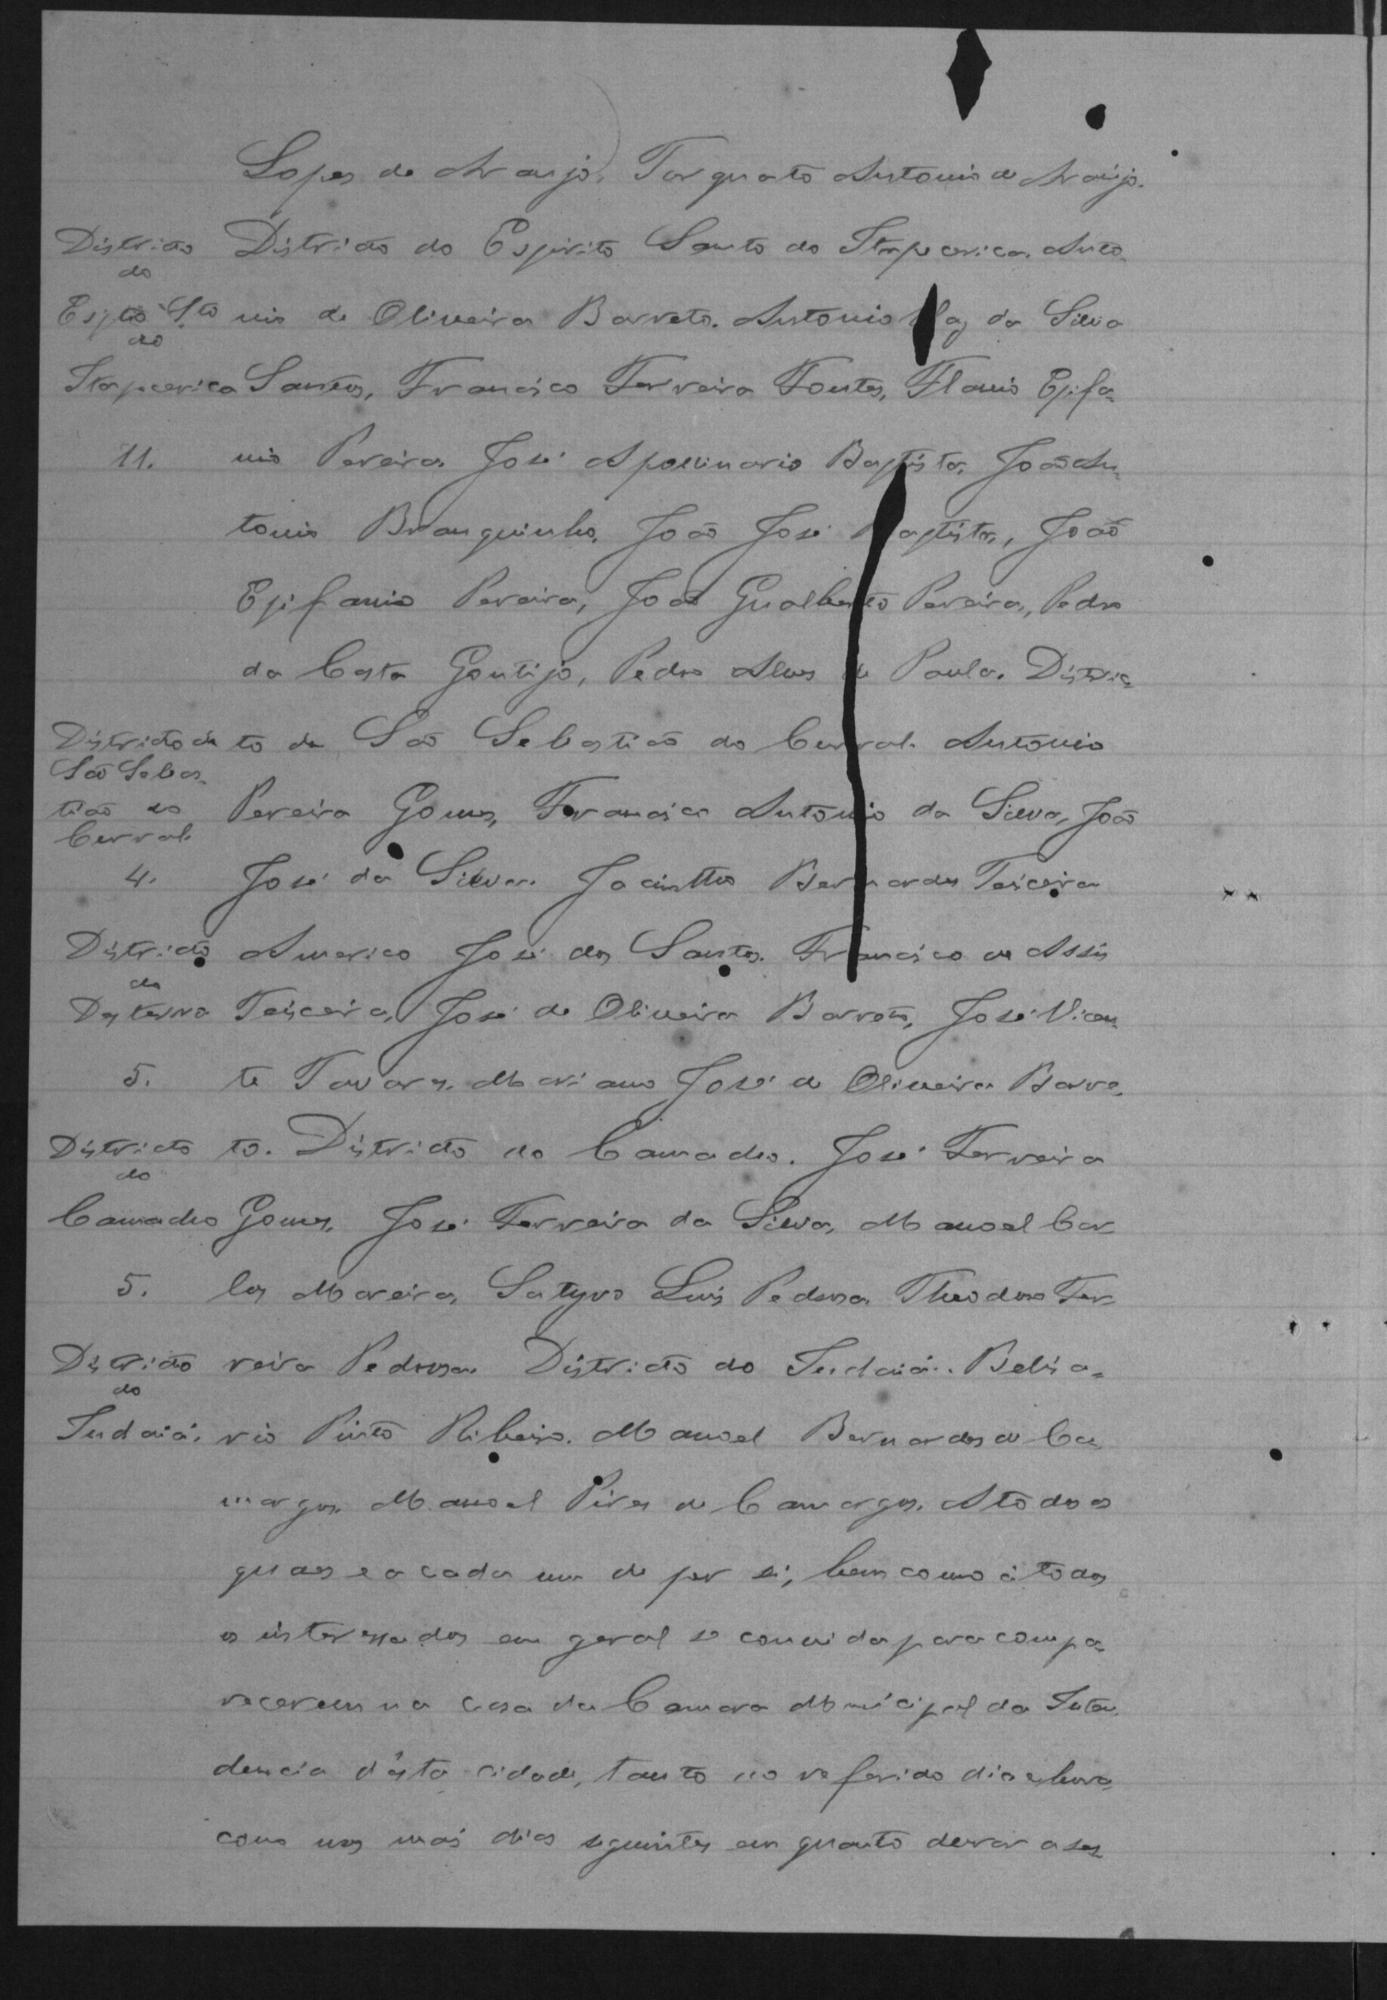 Lopes de Araujo, Torquato Antonio de Araujo.
Districto Districto do Espirito Santo do Itapecerica. Anto-
do
Espto Sto nio de Oliveira Barreto. Antonio da Silva
do
Itapecerica Santos, Francisco Ferreira Fontes, Flavio Epifa-
11. nio Pereira, José Apollinario Baptista, João An-
tonio Branquinho, João José Baptista, João
Epifanio Pereira, João Gualberto Pereira, Pedro
da Costa Gontijo, Pedro Alves de Paula. Distric-
Districto de to de São Sebastião do Curral. Antonio
São Sebas-
tião do Pereira Gomes, Francisco Antonio da Silva, João
Curral.
4. José da Silva. Jacintho Bernardes Teiceira
Districto Americo José dos Santos. Francisco de Assis
do
Desterro Teiceira, José de Oliveira Barreto, José Vicen-
5. te Tavares. Mariano José de Oliveira Barre-
Districto to. Districto do Camacho. José Ferreira
do
Camacho Gomes, José Ferreira da Silva, Manoel Car-
5. los Moreira, Satyro Luis Pedrosa, Theodoro Fer-
Districto reira Pedrosa. Districto do Indaiá. Belisa-
do
Indaiá. rio Pinto Ribeiro. Manoel Bernardes de Ca-
margos. Manoel Pires de Camargos. A todos os
quaes e a cada um de per si, bem como á todos
os interessados em geral se convida para compa-
recerem na casa da Camara Municipal da Inten-
dencia d'ésta cidade, tanto no referido dia e hora,
como nos mais dias seguintes em quanto durar a ses-